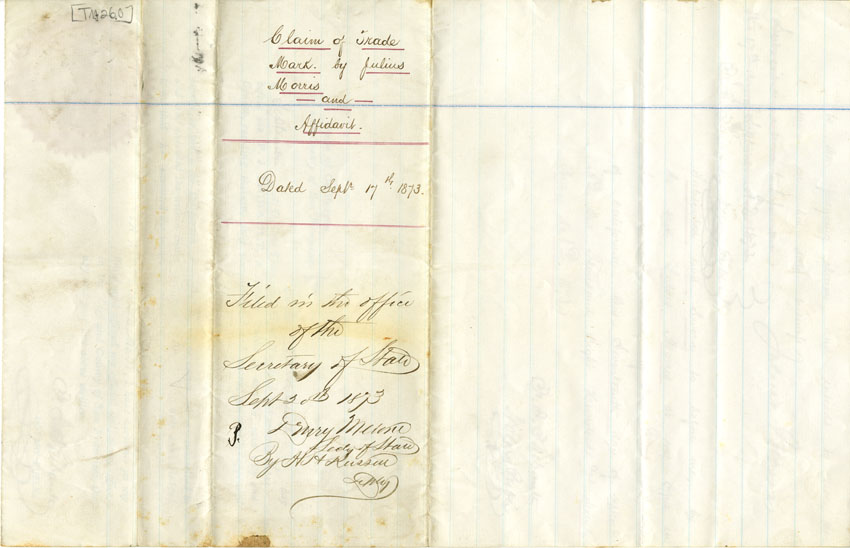 TM260
Claim of Trade
Mark. by Julius
Morris
— and —
Affidavit.
Dated Sept. 17th, 1873.
Filed in the office
of the
Secretary of State
Sept 20th 1873
Secy of State
By H H Russell